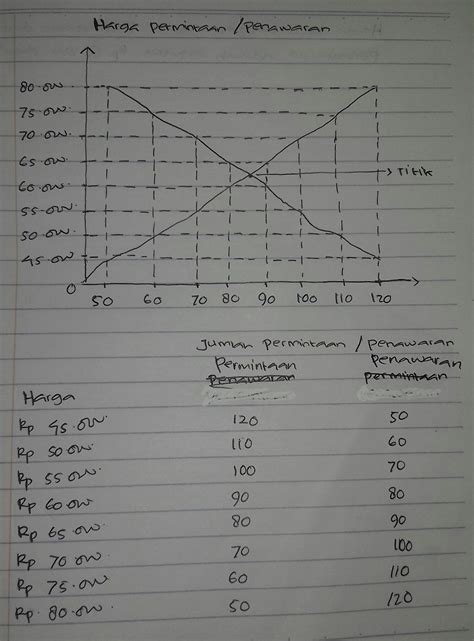 Harga permintaan / penawaran
80.000
75.000
70.000
65.000
60.000
55.000
50.000
45.000
→ Titik
0 50 60 70 80 90 100 110 120
Jumlah permintaan / penawaran
Permintaan Penawaran
penawaran permintaan
Harga
Rp 45.000 120 50
Rp 50.000 110 60
Rp 55.000 100 70
Rp 60.000 90 80
Rp 65.000 80 90
Rp 70.000 70 100
Rp 75.000 60 110
Rp. 80.000 50 120